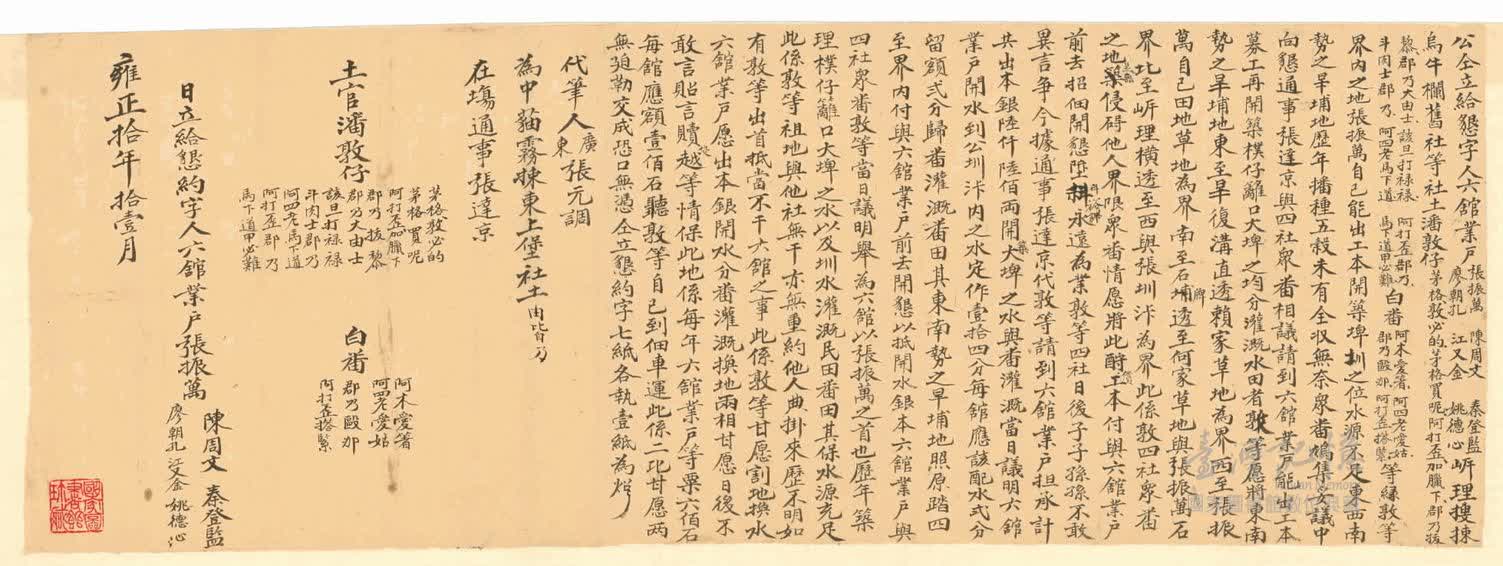 公仝立給懇字人六館業戶張振萬 陳周文 秦登監 廖朝孔 江又金 姚德心 岍理搜捒
烏牛欄舊社等社土潘敦仔茅格敦必的茅格買呢阿打歪加臘下郡乃拔
黎郡乃大由士 該旦打祿祿 阿打歪郡乃 斗肉士郡乃 阿四老馬下道 馬下道甲必難白番阿木愛著 阿四老愛姑 郡乃殿那 阿打歪搭䋈等緣敦等
界內之地張振萬自己能出工本開築埤圳之位水源不足東西南
勢之旱埔地歷年播種五穀未有全收無奈眾番鳩集妥議中
向懇通事張達京與四社眾番相議請到六館業戶能出工本
募工再開築樸仔籬口大埤之均分灌溉水田者敦等愿將東南
勢之旱埔地東至旱復溝直透賴家草地為界西至張振
萬自己田地草地為界南至石埔牌透至何家草地與張振萬石
界北至岍理橫透至西與張圳汴為界此係敦四社眾番
之地並無侵碍他人界限眾番情愿將此酧工本付與六館業戶
前去招佃開懇陞耕永遠為業敦等四社日後子子孫孫不敢
異言爭今據通事張達京代敦等請到六館業戶担承計
共出本銀陸仟陸佰両開築大埤之水與番灌溉當日議明六館
業戶開水到公圳汴內之水定作壹拾四分每館應該配水弍分
留額弍分歸番灌溉番田其東南勢之旱埔地照原踏四
至界內付與六館業戶前去開懇以抵開水銀本六館業戶與
四社眾番敦等當日議明舉為六館以張振萬之首也歷年築
理樸仔籬口大埤之水以及圳水灌溉民田番田其保水源充足
此係敦等祖地與他社無干亦無重約他人典掛來歷不明如
有敦等出首抵當不干六館之事此係敦等甘愿割地換水
六館業戶愿出本銀開水分番灌溉換地兩相甘愿日後不
敢言貼言贖越等情保此地係每年六館業戶等粟六佰石
每館應額壹佰石聽敦等自己到佃車運此係二比甘愿两
無廹勒交成恐口無憑仝立懇約字七紙各執壹紙為炤
代筆人廣東張元調
為中貓霧捒東上堡社土肉皆乃
在塲通事張達京
土官潘敦仔
茅格敦必的
茅格買呢
阿打歪加臘下
郡乃拔黎
郡乃大由士
該旦打祿祿
斗肉士郡乃
阿四老馬下道
阿打歪郡乃
馬下道甲必難
白番
阿木愛著
阿四老愛姑
郡乃殿那
阿打歪搭䋈
日立給懇約字人六館業戶張振萬 陳周文 秦登監 廖朝孔 江又金 姚德心
雍正拾年拾壹月
臺灣記憶
Taiwan Memory